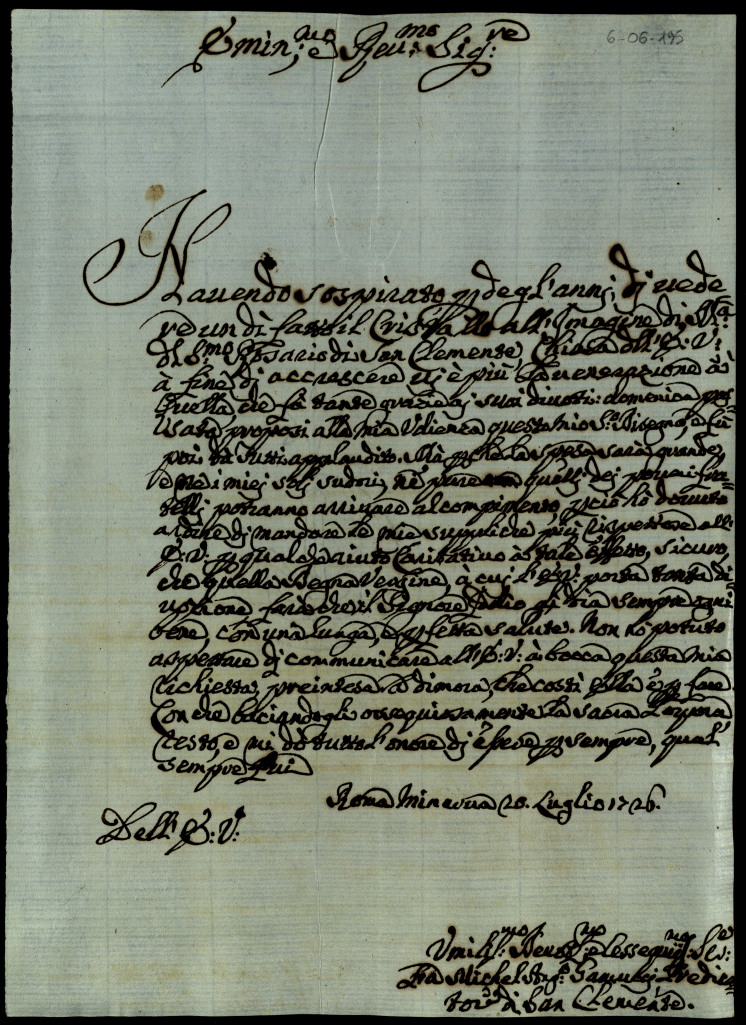 6-06-195
Emin:mo e Reu:mo Sig:re
Hauendo sospirato p degl'anni, di uede
re un di fatto il Cristallo all'Imagine di M:a
del S:mo Rosario di San Clemente, Chiesa dell'E: V:
à fine di accrescere uie più la uenerazione à
quella, che fà tante grazie à suoi diuoti: domenica pas
sata proposi alla mia Vdienza questo mio S:o disegno, e fù
poi da tutti applaudito. Mà perche la spesa sarà grande,
e nè i miei soli sudori, nè pure quelli dei poueri fra=
telli potranno arriuare al compimento, pciò hò douuto
ardire di mandare le mie suppliche più riuerenti all'
E: V: p qualche aiuto Caritatiuo à tale effetto, sicuro,
che quella Regina Vergine, à cui l'E: V: porta tanta di
uozione farà che il Signore Iddio gli dia sempre ogni
bene, con una lunga, e perfetta salute. Non hò potuto
aspettare di communicare all'E: V: à bocca questa mia
richiesta, preintesa la dimora, che costì ella è p fare.
Con che baciandogli ossequiosamente la sacra Porpora
resto, e mi dò tutto l'onore di essere p sempre, qual'
sempre fui
Roma Minerua 20. Luglio 1726.
Dell'E: V:
Vmilis:mo Deuot:mo et Ossequi:mo Ser:e
Fra Michel'Ang:o Predica=
tore di San Clemente.